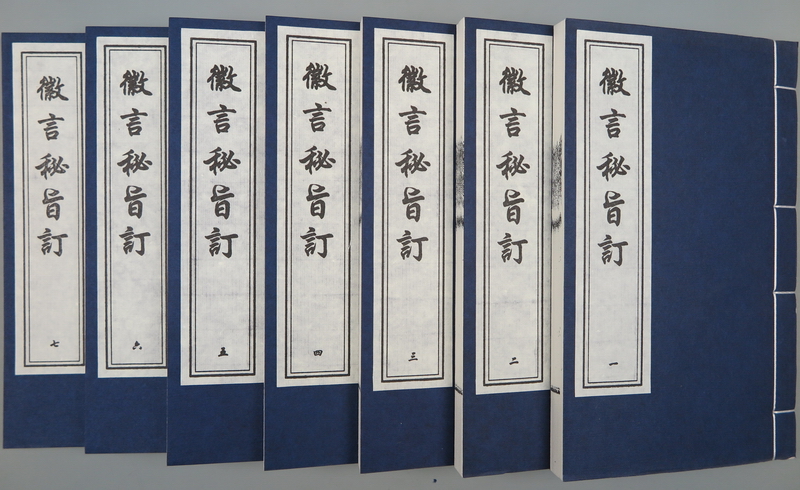 徽言秘旨訂
一
徽言秘旨訂
二
徽言秘旨訂
三
徽言秘旨訂
四
徽言秘旨訂
五
徽言秘旨訂
六
徽言秘旨訂
七